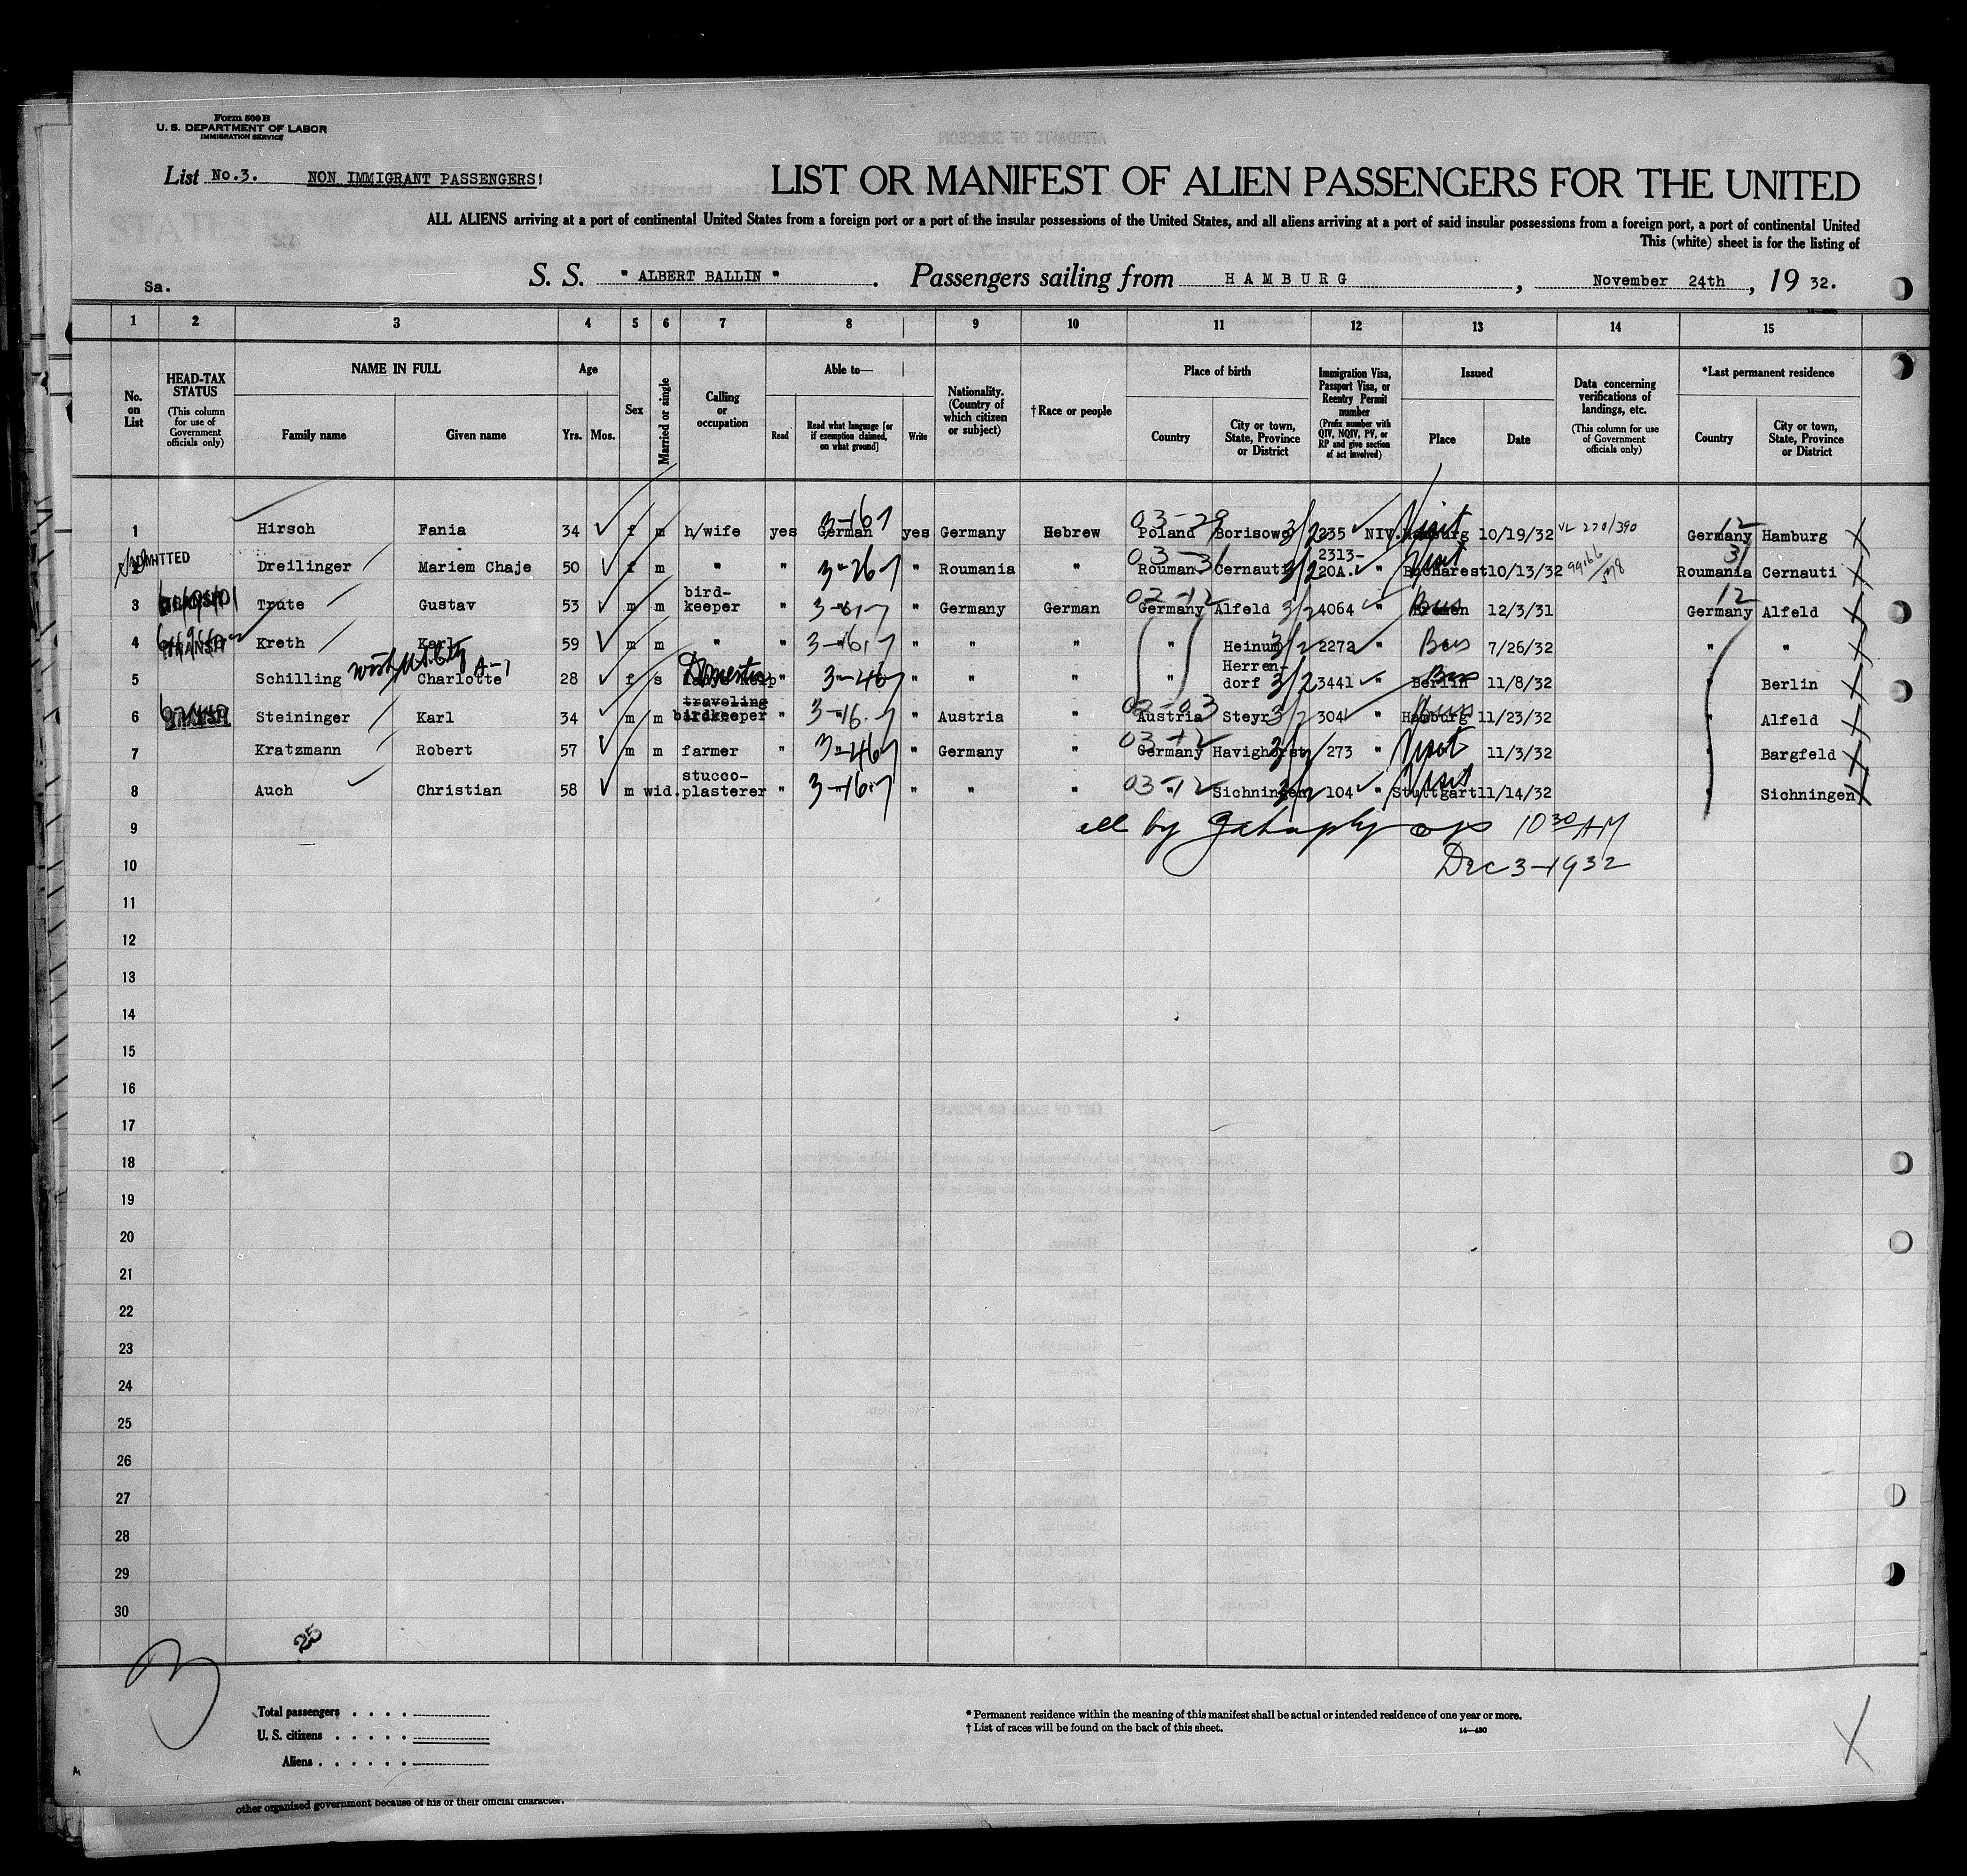 Form 500 B
U. S. DEPARTMENT OF LABOR
IMMIGRATION SERVICE
List No.3. NON IMMIGRANT PASSENGERS!
LIST OR MANIFEST OF ALIEN PASSENGERS FOR THE UNITED
ALL ALIENS arriving at a port of continental United States from a foreign port or a port of the insular possessions of the United States, and all aliens arriving at a port of said insular possessions from a foreign port, a port of continental United
This (white) sheet is for the listing of
Sa.
S. S. " ALBERT BALLIN " . Passengers sailing from HAMBURG , November 24th , 19 32.
1 2 3 4 5 6 7 8 9 10 11 12 13 14 15
No. on List
HEAD-TAX STATUS (This column for use of Government officials only)
NAME IN FULL
Family name Given name
Age
Yrs. Mos.
Sex
Married or single
Calling or occupation
Able to—
Read Read what language [or if exemption claimed, on what ground] Write
Nationality. (Country of which citizen or subject)
†Race or people
Place of birth
Country City or town, State, Province or District
Immigration Visa, Passport Visa, or Reentry Permit number (Prefix number with QIV, NQIV, PV, or RP and give section of act involved)
Issued
Place Date
Data concerning verifications of landings, etc. (This column for use of Government officials only)
*Last permanent residence
Country City or town, State, Province or District
1 Hirsch Fania 34 f m h/wife yes German 3-16 yes Germany Hebrew 03-29 Poland Borisowo 3/2 235 NIV. Visit Hamburg 10/19/32 VL 270/390 12 Germany Hamburg
2 ADMITTED Dreilinger Mariem Chaje 50 f m " " 3-26 " Roumania " 03-31 Rouman. Cernauti 3/2 2313-20A. " Visit Bucharest 10/13/32 31 Roumania Cernauti
3 Trute Gustav 53 m m bird-keeper " " Germany German 02-12 Germany Alfeld 3/2 4064 " Bus Bremen 12/3/31 12 Germany Alfeld
4 TRANSIT Kreth Karl 59 m m " " " " " " Heinum 3/2 2272 " Bus 7/26/32 " "
5 Schilling Charlotte 28 f s Domestic " 3-46 " " " " Herren-dorf 3/2 3441 " Bus Berlin 11/8/32 Berlin
6 Steininger Karl 34 m m traveling birdkeeper " 3-16 " Austria " 02-03 Austria Steyr 3/2 304 " Bus Hamburg 11/23/32 " Alfeld
7 Kratzmann Robert 57 m m farmer " 3-46 " Germany " 03-12 Germany Havighorst 3/2 273 " Visit 11/3/32 " Bargfeld
8 Auch Christian 58 m wid. stucco-plasterer " 3-16 " " " 03-12 " Sichningen 3/2 104 " Visit Stuttgart 11/14/32 Sichningen
9 all by 10 30 AM
10 Dec 3-1932
11
12
13
14
15
16
17
18
19
20
21
22
23
24
25
26
27
28
29
30
25
Total passengers . . . .
U. S. citizens . . . . .
Aliens . . . . . .
* Permanent residence within the meaning of this manifest shall be actual or intended residence of one year or more.
† List of races will be found on the back of this sheet. 14—430
other organized government because of his or their official character.